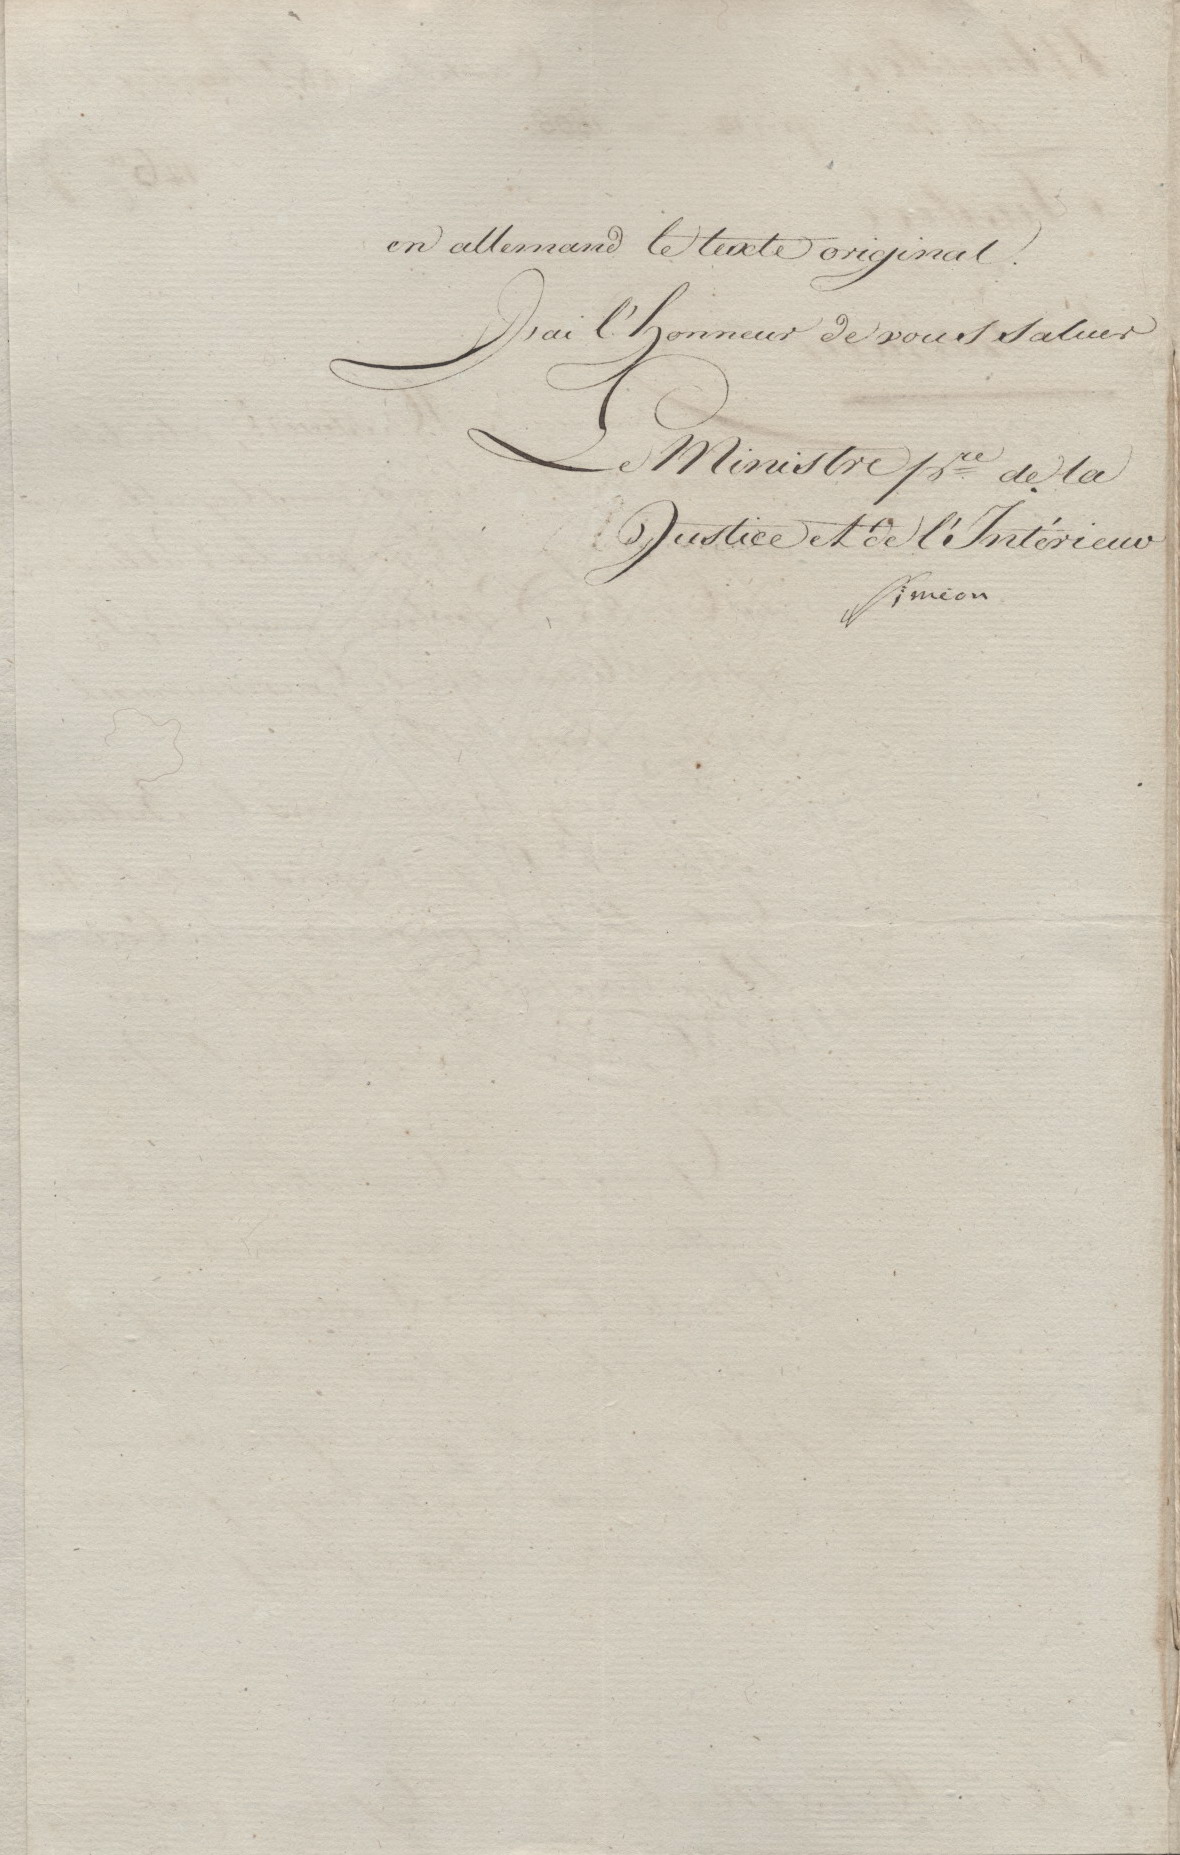 en allemand le texte original.
J'ai l'honneur de vous saluer
Le Ministre p.re de la
Justice et de l'Intérieur
Siméon